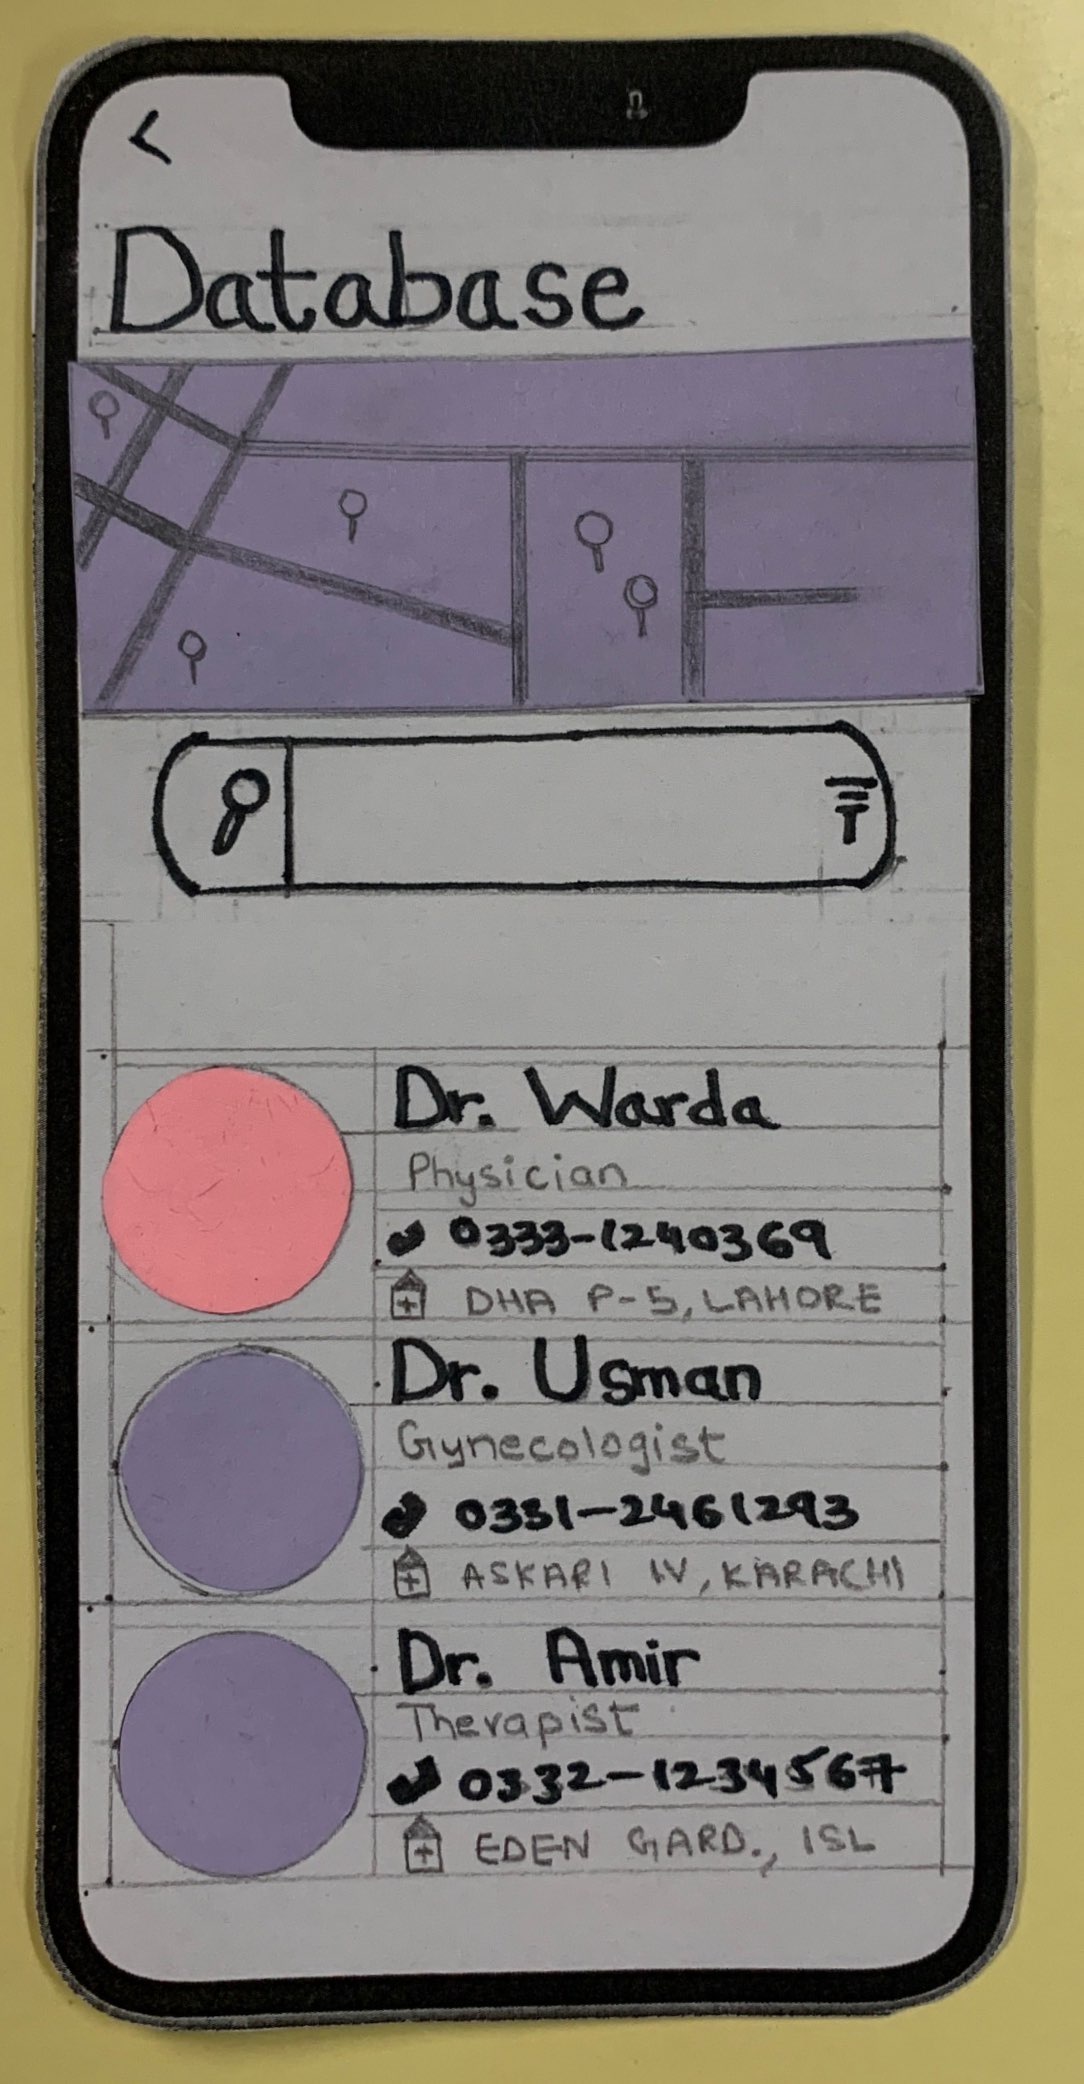 <
Database
Dr. Warda
Physician
0333-1240369
DHA P-5, LAHORE
Dr. Usman
Gynecologist
0331-2461293
ASKARI IV, KARACHI
Dr. Amir
Therapist
0332-1234567
EDEN GARD., ISL